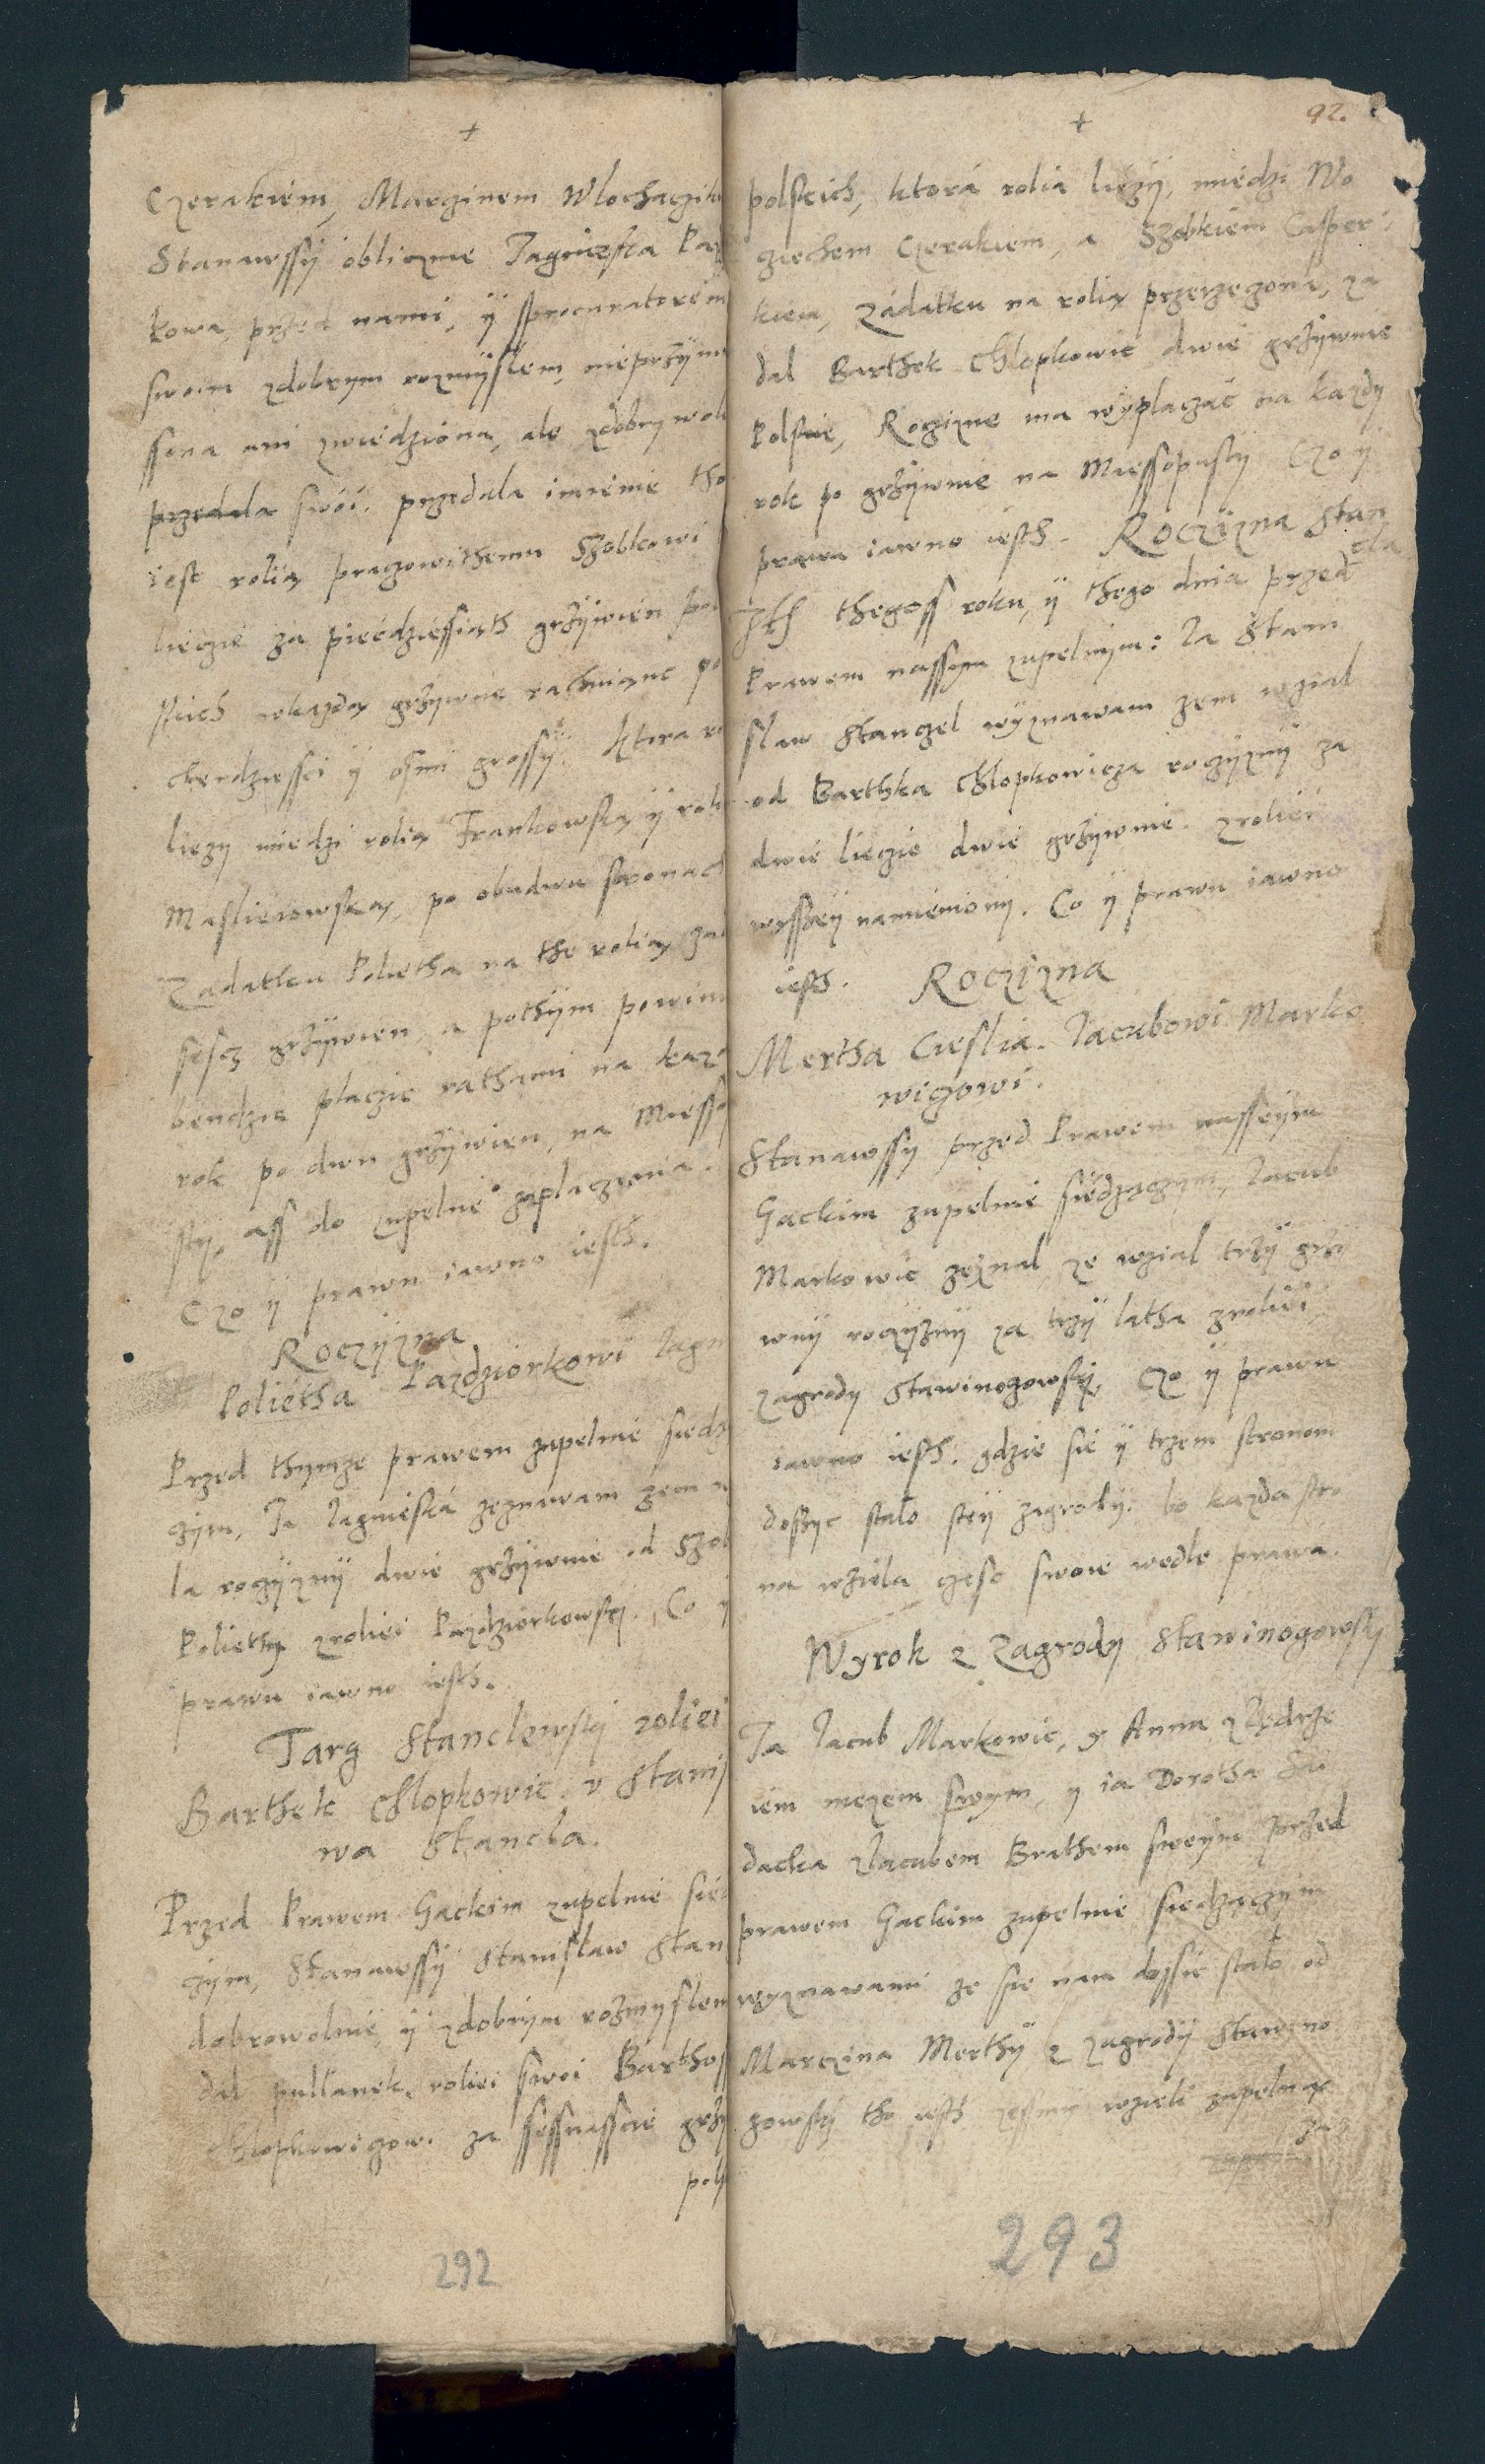 +
Czerakiem, Marczinem Wlochaczik
Stanawssÿ obliczne Jagnieska Paz
kowa, przed nami, ÿ sprocuratorem
swoim zdobrym rozmÿslem, nieprzÿmu
ssona ani zwiedziona, ale zdobry woli
przedala swoi. przedala imienie tho
iest rolią praczowithemu Szobkowi
liecie za piecdziessiąth grzÿwien pol
skich wkazdą grzÿwne rachuiąnc po
cterdziesci ÿ osmi grossÿ. Ktora ro
liezy miedzi rolią Frankowską ÿ roli
Maslierowską, po obudwu stronach
Zadatku Polietha na the rolią zad
sescz grzÿwien, a pothÿm powin
bendzie placzic rathami na kaz
rok po dwu grzÿwien, na Miesso
stÿ, ass do zupelne zaplaczenia.
Czo ÿ prawu iawno iesth.
Roczÿzna
Polietha Pazdziorkowi Jagn
Przed thymze prawem zupelnie siedz
czym, Ja Jagnieska zeznawam zem w
la roczÿznÿ dwie grzÿwnie od Szob
Poliethy zroliei Pazdziorkowski. Co ÿ
prawu iawno iesth.
Targ Stanclewski roliei
Barthek Chlopkowic v Stanis
wa Stancla.
Przed Prawem Gackim zupelnie sied
czym, Stanawssÿ Stanislaw Stan
dobrowolnie, ÿ zdobrym rozmyslem
dal pullanek, roliei swoi Barthos
Chlopkowiczow. za sessnasscie grzÿ
pols
292
92.
+
polskich, ktora rolia liezÿ, miedzi Wo
ciechem Czerakiem, a Szobkiem Casper
kiem, Zadatku na rolią przerzeczoną, za
dal Barthek Chlopkowic dwie grzÿwnie
Polskie, Roczizne ma wÿplaczac na kazdÿ
rok po grzÿwnie na Miessopustÿ Czo ÿ
prawu iawno iesth. Roczizna Stan
cla
thegoss roku, ÿ thego dnia przed
Prawem nassym zupelnÿm: Ja Stani
slaw Stanczel wÿznawam zem wzial
od Barthka Chlopkowicza roczÿznÿ za
dwie liecie dwie grzÿwnie. zroliei
wÿsseÿ namienionÿ. Co ÿ prawu iawno
iesth. Roczizna
Mertha Cieslia. Jacubowi Marko
wiczowi.
Stanawssy przed Prawem nasseym
Gackim zupelnie siedzączym, Jacub
Markowic zeznal ze wzial trzÿ grzÿ
wnÿ roczÿznÿ za trzÿ latha zroliei
zagrody Stawinogowskÿ. Czo ÿ prawu
iawno iesth. gdzie sie ÿ trzem stronom
dosszyc stalo steÿ zagrodÿ. bo kazda stro
na wziela częsc swoie wedle prawa.
Wyrok z Zagrody Stawinogowskÿ
Ja Jacub Markowic, y Anna zJędrze
iem męzem swym, y ia Dorotha
dacka zJacubem Brathem sweÿm przed
prawem Gackim zupelnie siedzączym
wyznawami ze sie nam dossic stalo od
Marczina Merthÿ z zagrodÿ Stawino
gowskÿ tho iesth zessmÿ wzieli zupelną
za
293